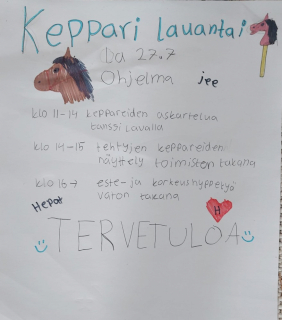 Keppari lauantai
La 27.7
Ohjelma jee
klo 11-14 keppareiden askartelua
tanssi lavalla
klo 14-15 tehtyjen keppareiden
näyttely toimiston takana
klo 16→ este- ja korkeushyppelyä
varon takana
Hepat
H
TERVETULOA